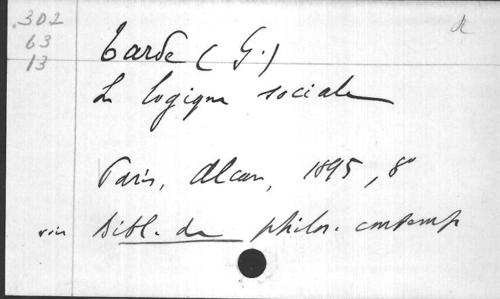 .302
63
13
R
Tarde (G.)
La logique sociale
Paris, Alcan, 1895, 8°
voir Bibl. de philos. contemp